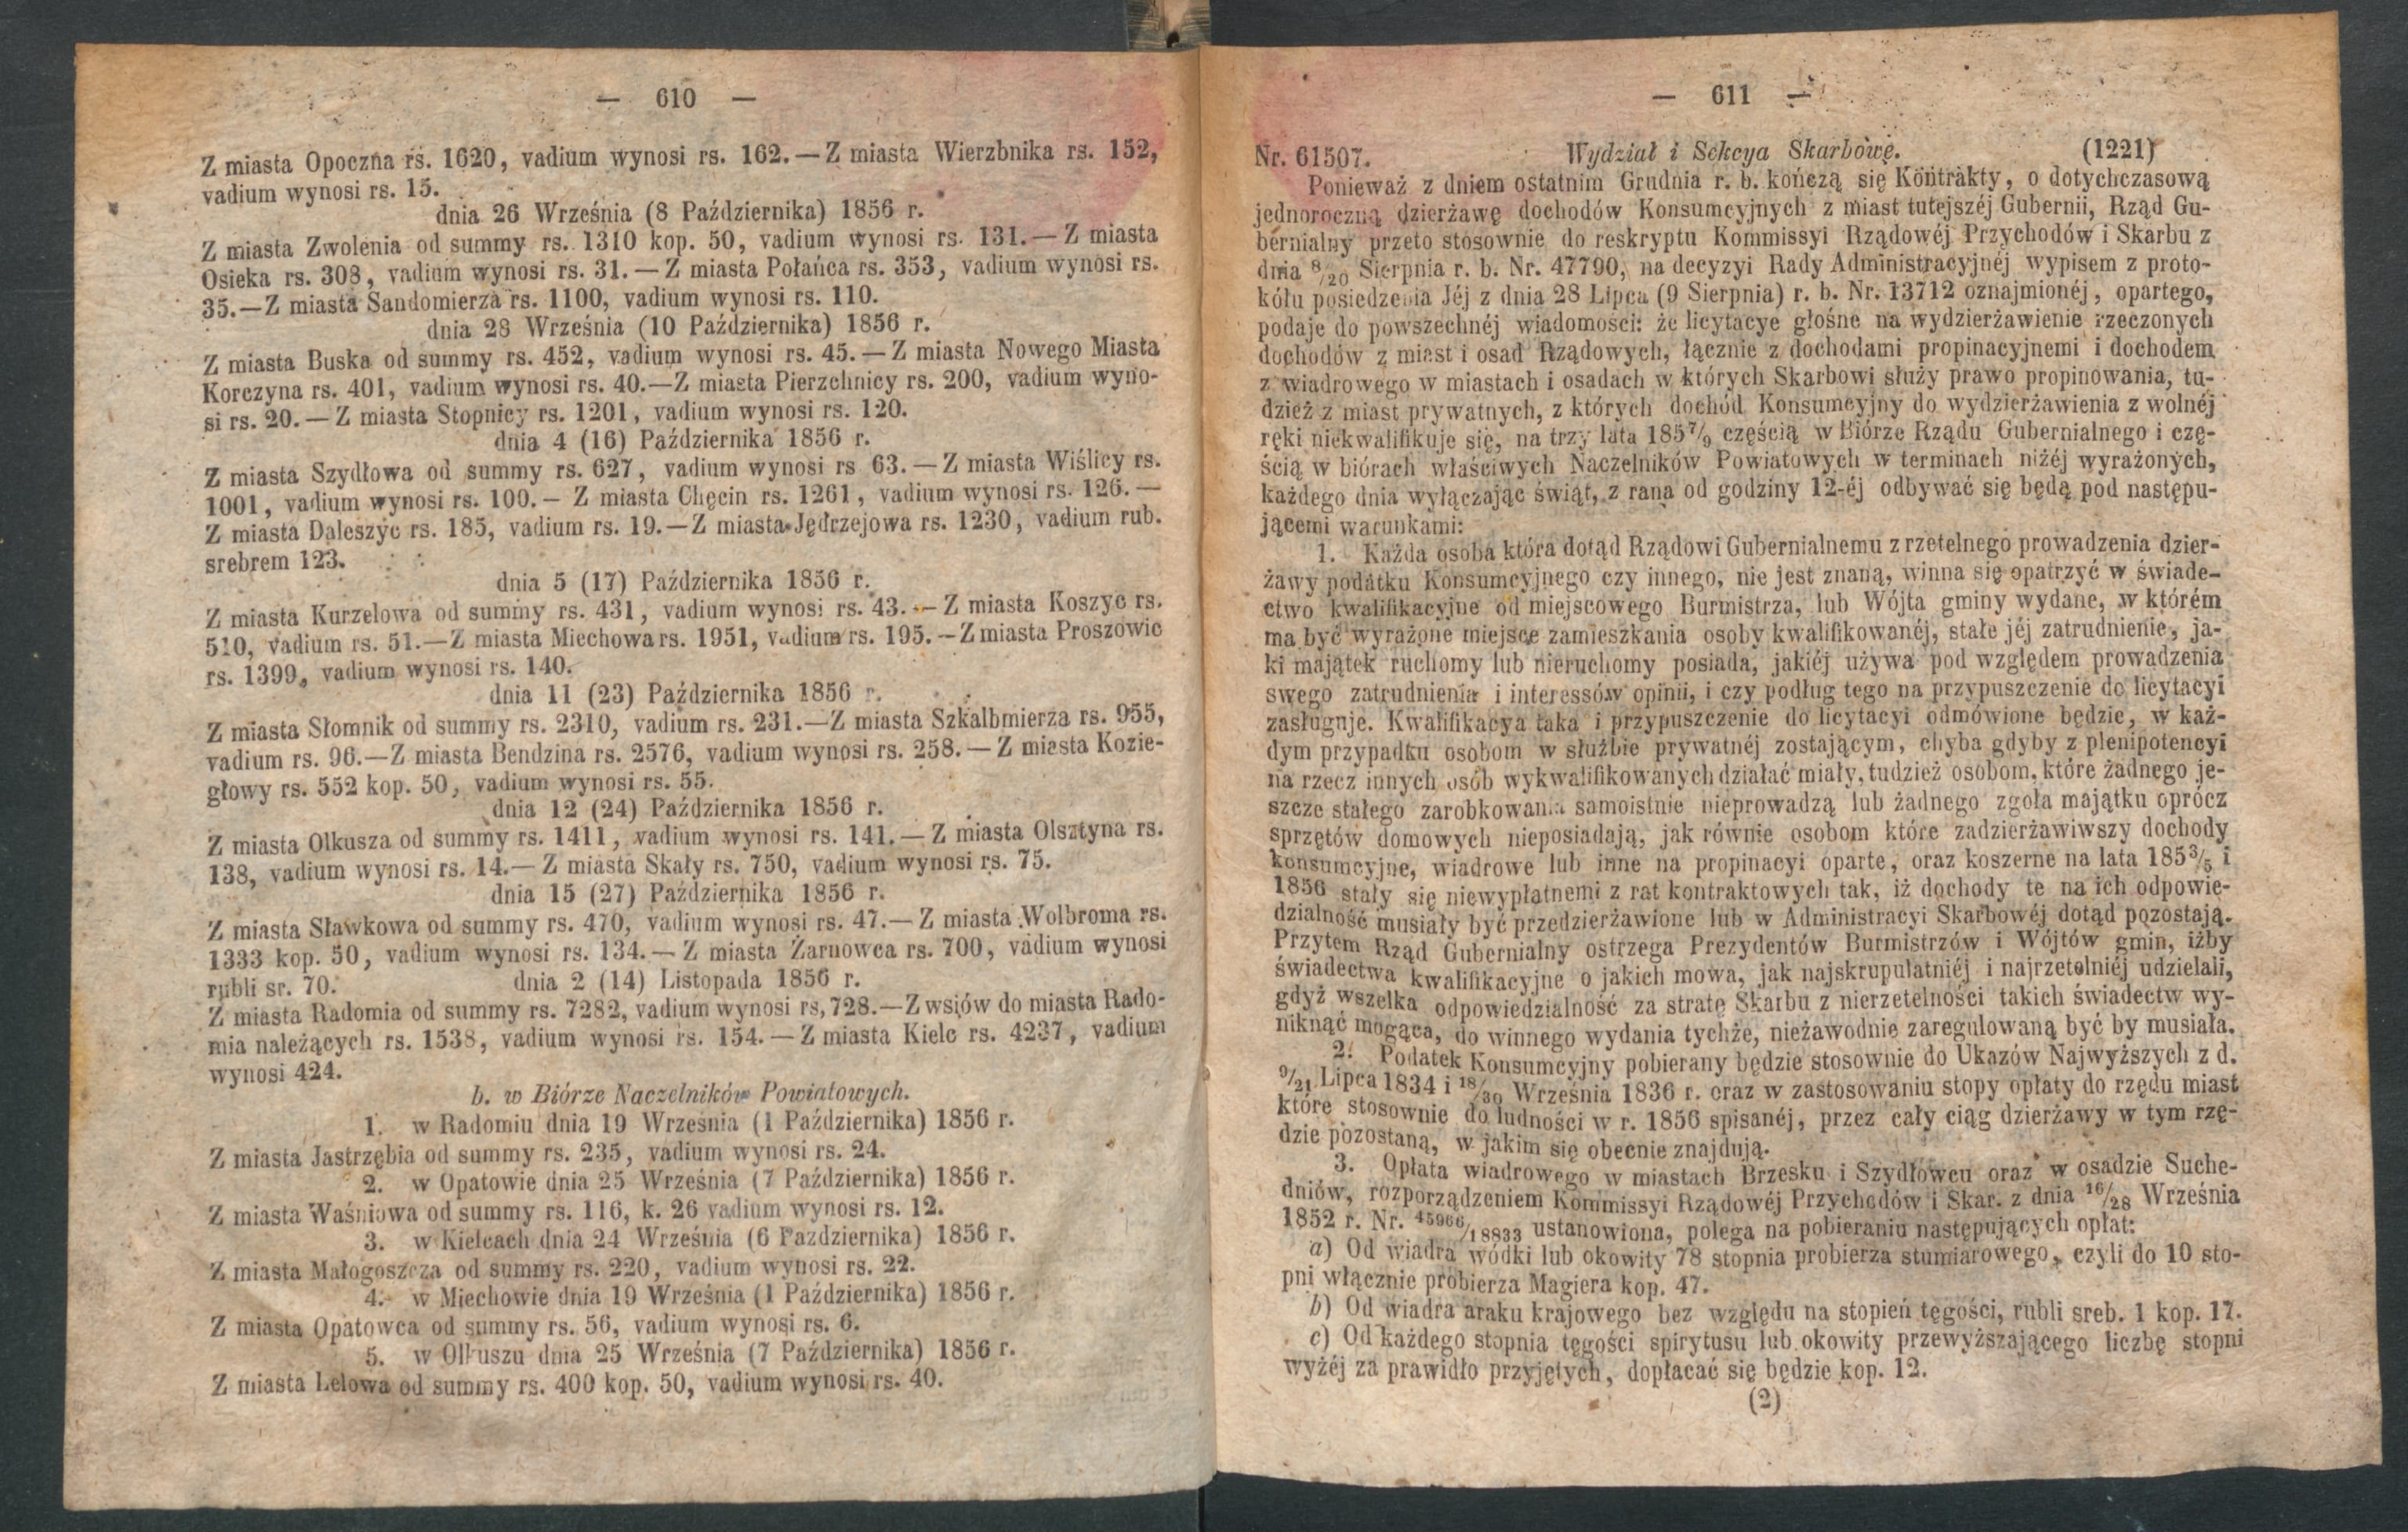 — 610 —
Z miasta Opoczna rs. 1620, vadium wynosi rs. 162. — Z miasta Wierzbnika rs. 152,
vadium wynosi rs. 15.
dnia 26 Września (8 Października) 1856 r.
Z miasta Zwolenia od summy rs. 1310 kop. 50, vadium wynosi rs. 131. — Z miasta
Osieka rs. 308, vadium wynosi rs. 31. — Z miasta Połańca rs. 353, vadium wynosi rs.
35. — Z miasta Sandomierza rs. 1100, vadium wynosi rs. 110.
dnia 28 Września (10 Października) 1856 r.
Z miasta Buska od summy rs. 452, vadium wynosi rs. 45. — Z miasta Nowego Miasta
Korczyna rs. 401, vadium wynosi rs. 40.—Z miasta Pierzchnicy rs. 200, vadium wyno-
si rs. 20. — Z miasta Stopnicy rs. 1201, vadium wynosi rs. 120.
dnia 4 (16) Października 1856 r.
Z miasta Szydłowa od summy rs. 627, vadium wynosi rs 63. — Z miasta Wiślicy rs.
1001, vadium wynosi rs. 100. — Z miasta Chęcin rs. 1261, vadium wynosi rs. 126. —
Z miasta Daleszyc rs. 185, vadium rs. 19. — Z miasta Jędrzejowa rs. 1230, vadium rub.
srebrem 123.
dnia 5 (17) Października 1856 r.
Z miasta Kurzelowa od summy rs. 431, vadium wynosi rs. 43. — Z miasta Koszyc rs.
510, vadium rs. 51.—Z miasta Miechowa rs. 1951, vadium rs. 195. — Z miasta Proszowic
rs. 1399, vadium wynosi rs. 140.
dnia 11 (23) Października 1856 r.
Z miasta Słomnik od summy rs. 2310, vadium rs. 231.—Z miasta Szkalbmierza rs. 955,
vadium rs. 96.—Z miasta Bendzina rs. 2576, vadium wynosi rs. 258. — Z miasta Kozie-
głowy rs. 552 kop. 50, vadium wynosi rs. 55.
dnia 12 (24) Października 1856 r.
Z miasta Olkusza od summy rs. 1411, vadium wynosi rs. 141. — Z miasta Olsztyna rs.
138, vadium wynosi rs. 14.— Z miasta Skały rs. 750, vadium wynosi rs. 75.
dnia 15 (27) Października 1856 r.
Z miasta Sławkowa od summy rs. 470, vadium wynosi rs. 47.— Z miasta Wolbroma rs.
1333 kop. 50, vadium wynosi rs. 134. — Z miasta Żarnowca rs. 700, vadium wynosi
rubli sr. 70. dnia 2 (14) Listopada 1856 r.
Z miasta Radomia od summy rs. 7282, vadium wynosi rs, 728.—Z wsiów do miasta Rado-
mia należących rs. 1538, vadium wynosi rs. 154. — Z miasta Kielc rs. 4237, vadium
wynosi 424.
b. w Biórze Naczelników Powiatowych.
1. w Radomiu dnia 19 Września (1 Października) 1856 r.
Z miasta Jastrzębia od summy rs. 235, vadium wynosi rs. 24.
2. w Opatowie dnia 25 Września (7 Października) 1856 r.
Z miasta Waśniowa od summy rs. 116, k. 26 vadium wynosi rs. 12.
3. w Kielcach dnia 24 Września (6 Pazdziernika) 1856 r.
Z miasta Małogoszcza od summy rs. 220, vadium wynosi rs. 22.
4. w Miechowie dnia 19 Września (1 Października) 1856 r.
Z miasta Opatowca od summy rs. 56, vadium wynosi rs. 6.
5. w Olkuszu dnia 25 Września (7 Października) 1856 r.
Z miasta Lelowa od summy rs. 400 kop. 50, vadium wynosi rs. 40.
— 611 —
Nr. 61507. Wydział i Sekcya Skarbowe. (1221)
Ponieważ z dniem ostatnim Grudnia r. b. kończą się Kontrakty, o dotychczasową
jednoroczną dzierżawę dochodów Konsumcyjnych z miast tutejszéj Gubernii, Rząd Gu-
bernialny przeto stosownie do reskryptu Kommissyi Rządowéj Przychodów i Skarbu z
dnia 8/20 Sierpnia r. b. Nr. 47790, na decyzyi Rady Administracyjnéj wypisem z proto-
kółu posiedzenia Jéj z dnia 28 Lipca (9 Sierpnia) r. b. Nr. 13712 oznajmionéj, opartego,
podaje do powszechnéj wiadomości: że licytacye głośne na wydzierżawienie rzeczonych
dochodów z miast i osad Rządowych, łącznie z dochodami propinacyjnemi i dochodem
z wiadrowego w miastach i osadach w których Skarbowi służy prawo propinowania, tu-
dzież z miast prywatnych, z których dochód Konsumcyjny do wydzierżawienia z wolnéj
ręki niekwalifikuje się, na trzy lata 1857/9 częścią w Biórze Rządu Gubernialnego i czę-
ścią w biórach właściwych Naczelników Powiatowych w terminach niżéj wyrażonych,
każdego dnia wyłączając świąt, z rana od godziny 12-éj odbywać się będą pod następu-
jącemi warunkami:
1. Każda osoba która dotąd Rządowi Gubernialnemu z rzetelnego prowadzenia dzier-
żawy podatku Konsumcyjnego czy innego, nie jest znaną, winna się opatrzyć w świade-
ctwo kwalifikacyjne od miejscowego Burmistrza, lub Wójta gminy wydane, w którém
ma być wyrażone miejsce zamieszkania osoby kwalifikowanéj, stałe jéj zatrudnienie, ja-
ki majątek ruchomy lub nieruchomy posiada, jakiéj używa pod względem prowadzenia
swego zatrudnienia i interessów opinii, i czy podług tego na przypuszczenie do licytacyi
zasługuje. Kwalifikacya taka i przypuszczenie do licytacyi odmówione będzie, w każ-
dym przypadku osobom w służbie prywatnéj zostającym, chyba gdyby z plenipotencyi
na rzecz innych osób wykwalifikowanych działać miały, tudzież osobom, które żadnego je-
szcze stałego zarobkowania samoistnie nieprowadzą lub żadnego zgoła majątku oprócz
sprzętów domowych nieposiadają, jak równie osobom które zadzierżawiwszy dochody
konsumcyjne, wiadrowe lub inne na propinacyi oparte, oraz koszerne na lata 1853/5 i
1856 stały się niewypłatnemi z rat kontraktowych tak, iż dochody te na ich odpowie-
dzialność musiały być przedzierżawione lub w Administracyi Skarbowéj dotąd pozostają.
Przytem Rząd Gubernialny ostrzega Prezydentów Burmistrzów i Wójtów gmin, iżby
świadectwa kwalifikacyjne o jakich mowa, jak najskrupulatniéj i najrzetelniéj udzielali,
gdyż wszelka odpowiedzialność za stratę Skarbu z nierzetelności takich świadectw wy-
niknąć mogąca, do winnego wydania tychże, nieżawodnie zaregulowaną być by musiała.
2. Podatek Konsumcyjny pobierany będzie stosownie do Ukazów Najwyższych z d.
9/21 Lipca 1834 i 18/30 Września 1836 r. oraz w zastosowaniu stopy opłaty do rzędu miast
które stosownie do ludności w r. 1856 spisanéj, przez cały ciąg dzierżawy w tym rzę-
dzie pozostaną, w jakim się obecnie znajdują.
3. Opłata wiadrowego w miastach Brzesku i Szydłowcu oraz w osadzie Suche-
dniów, rozporządzeniem Kommissyi Rządowéj Przychodów i Skar. z dnia 16/28 Września
1852 r. Nr. 45966/18833 ustanowiona, polega na pobieraniu następujących opłat:
a) Od wiadra wódki lub okowity 78 stopnia probierza stumiarowego, czyli do 10 sto-
pni włącznie probierza Magiera kop. 47.
b) Od wiadra araku krajowego bez względu na stopień tęgości, rubli sreb. 1 kop. 17.
c) Od każdego stopnia tęgości spirytusu lub okowity przewyższającego liczbę stopni
wyżéj za prawidło przyjętych, dopłacać się będzie kop. 12.
(2)